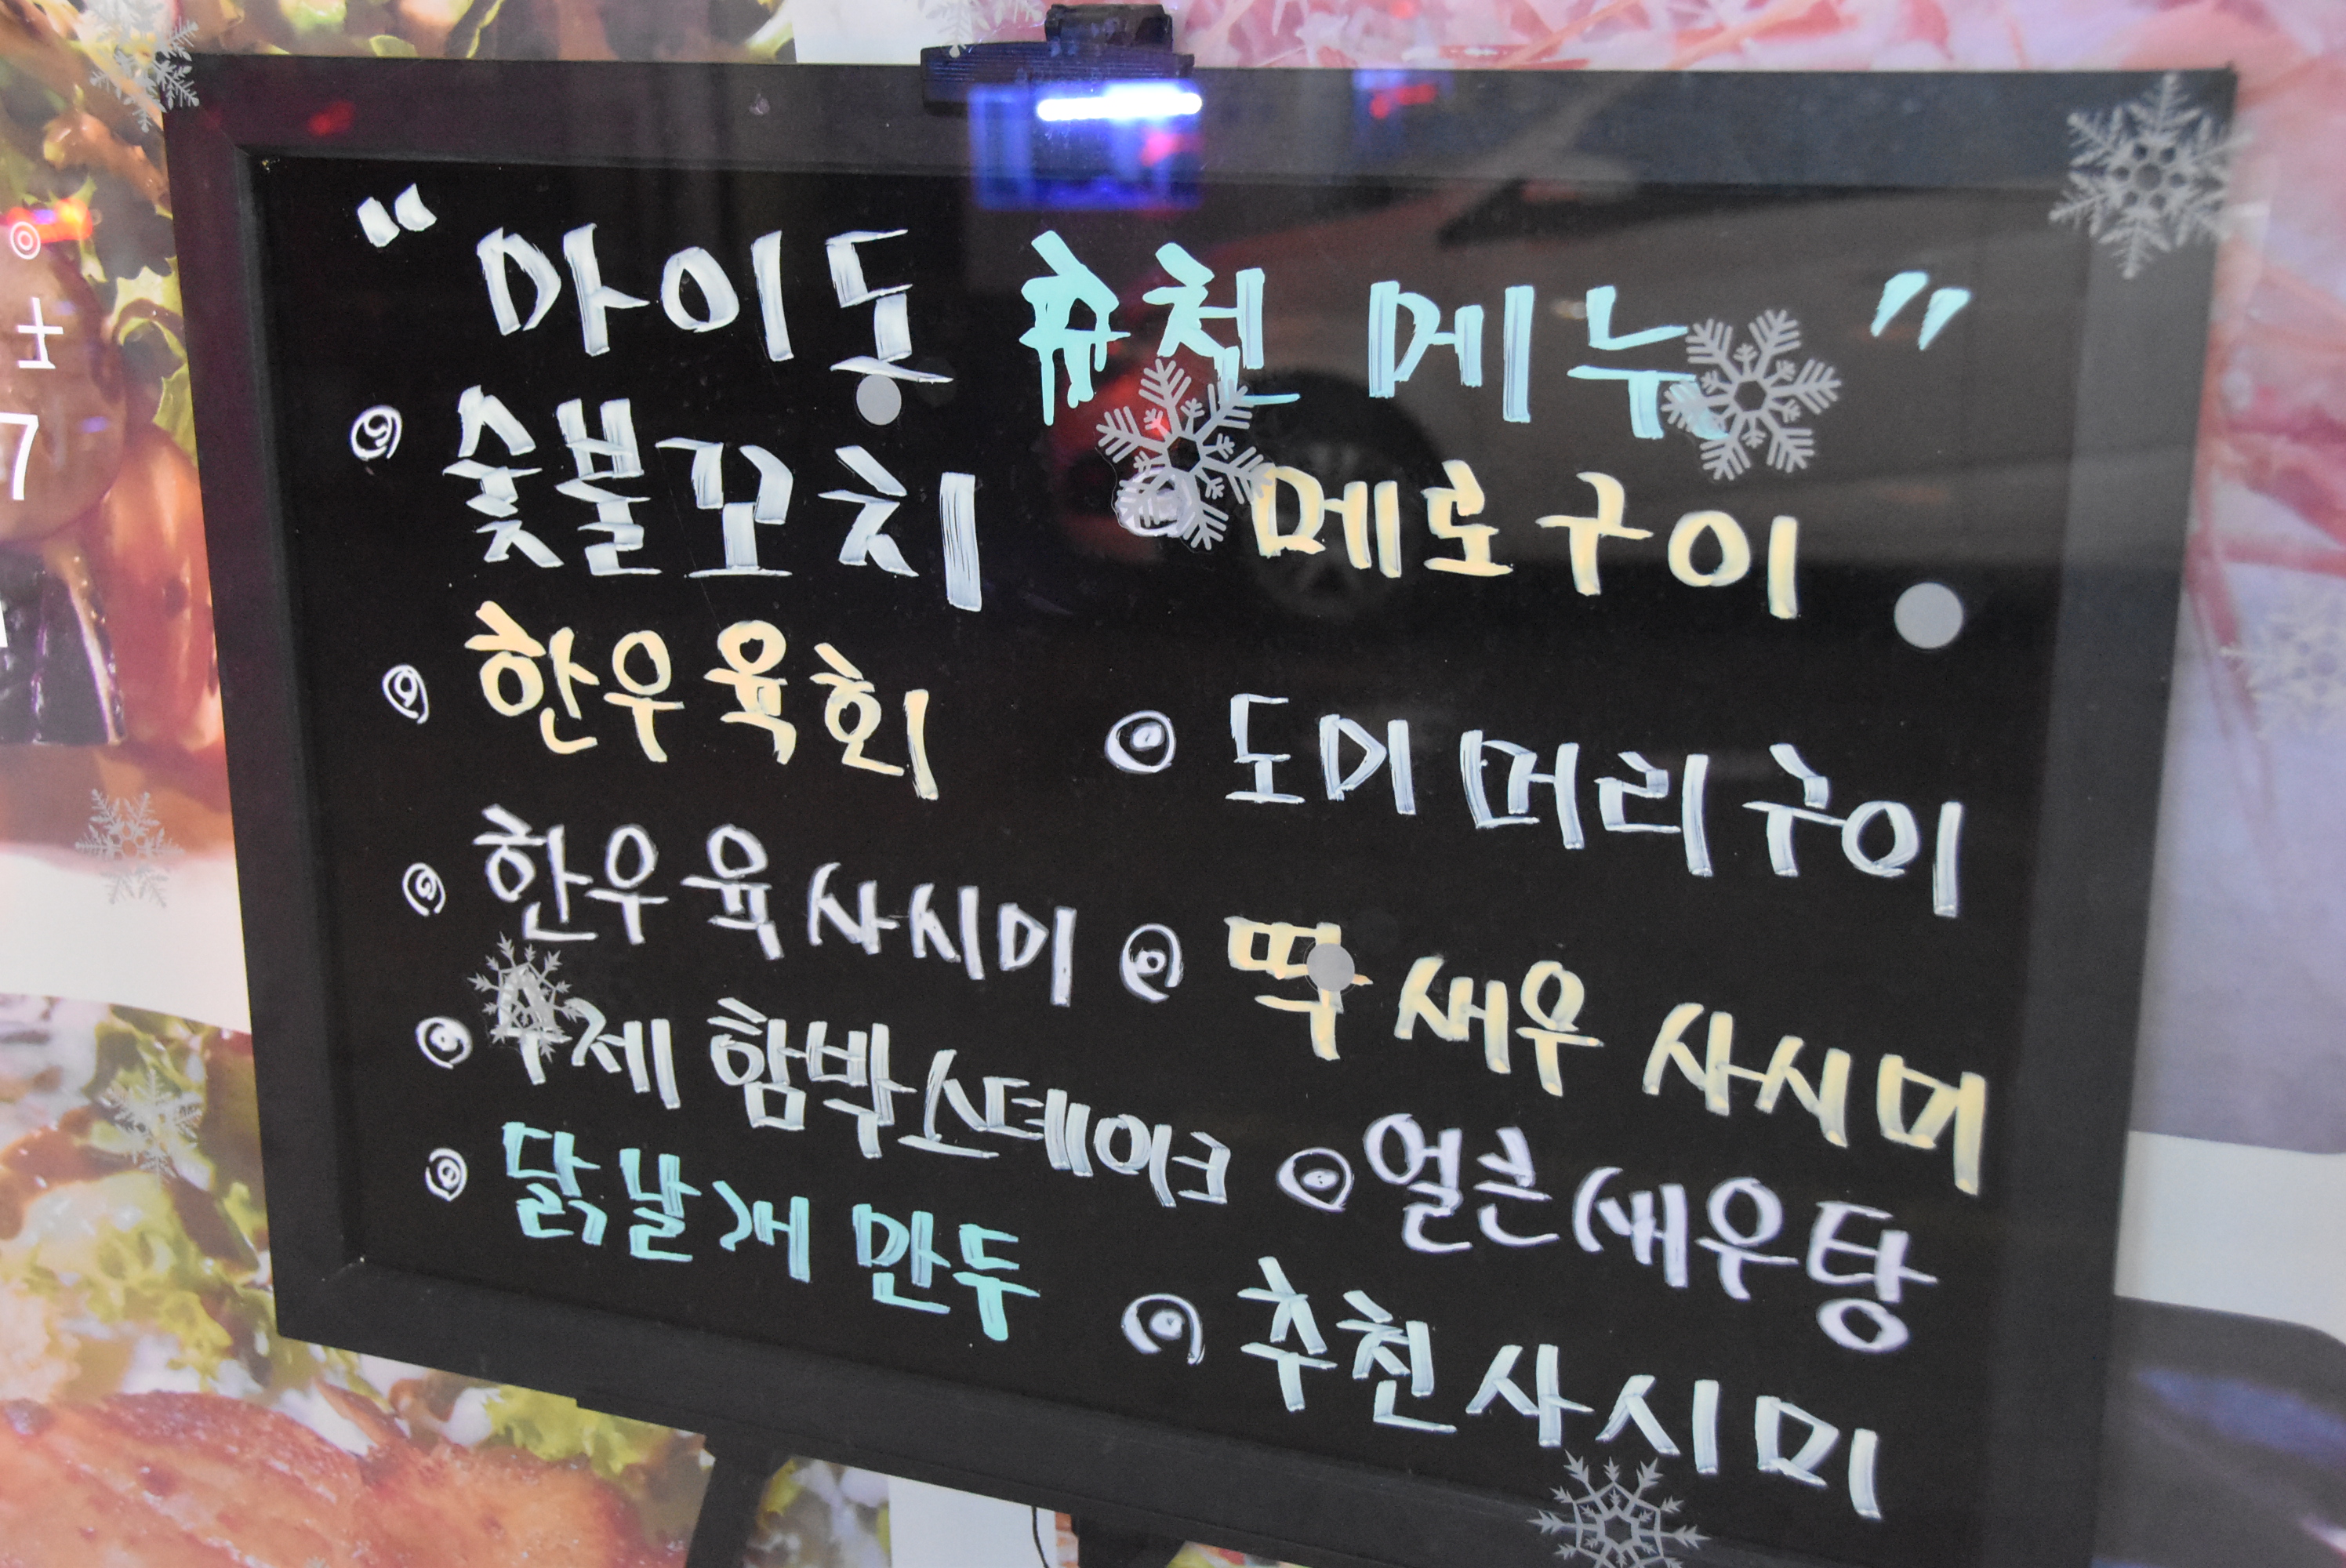 "마이도 추천 메뉴"
숯불꼬치
한우육회
한우육사시미
수제 함박스테이크
닭날개 만두
메로구이
도미머리구이
딱새우 사시미
얼큰새우탕
추천사시미